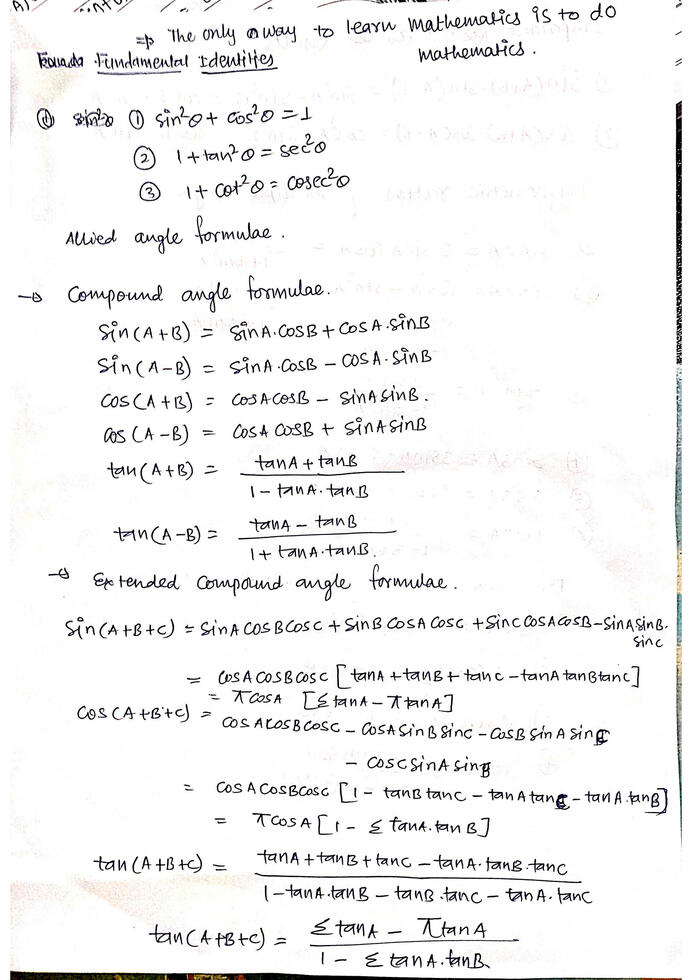 ⇒ The only way to learn mathematics is to do
mathematics.
Fundamental Identities
① sin²θ + cos²θ = 1
② 1 + tan²θ = sec²θ
③ 1 + cot²θ = cosec²θ
Allied angle formulae.
→ Compound angle formulae.
Sin(A+B) = SinA.CosB + CosA.SinB
Sin(A-B) = SinA.CosB - COSA.SinB
COS(A+B) = COSACOSB - SinASinB.
COS(A-B) = COSA COSB + SinASinB
tan(A+B) = tanA + tanB
1 - tanA.tanB
tan(A-B) = tanA - tanB
1 + tanA.tanB.
→ Extended Compound angle formulae.
Sin(A+B+C) = SinA COSBCOSC + SinB COSA COSC + SinC COSACOSB - SinASinB.
SinC
= COSACOSBCOSC [tanA + tanB + tanC - tanA tanBtanC]
= πCOSA [ΣtanA - πtanA]
COS(A+B+C) = COSACOSBCOSC - COSASinBSinC - COSBSinASinC
- COSCSinASinB
= COSACOSBCOSC [1 - tanBtanC - tanAtanC - tanA.tanB]
= πCOSA [1 - ΣtanA.tanB]
tan(A+B+C) = tanA + tanB + tanC - tanA.tanB.tanC
1 - tanA.tanB - tanB.tanC - tanA.tanC
tan(A+B+C) = ΣtanA - πtanA
1 - ΣtanA.tanB